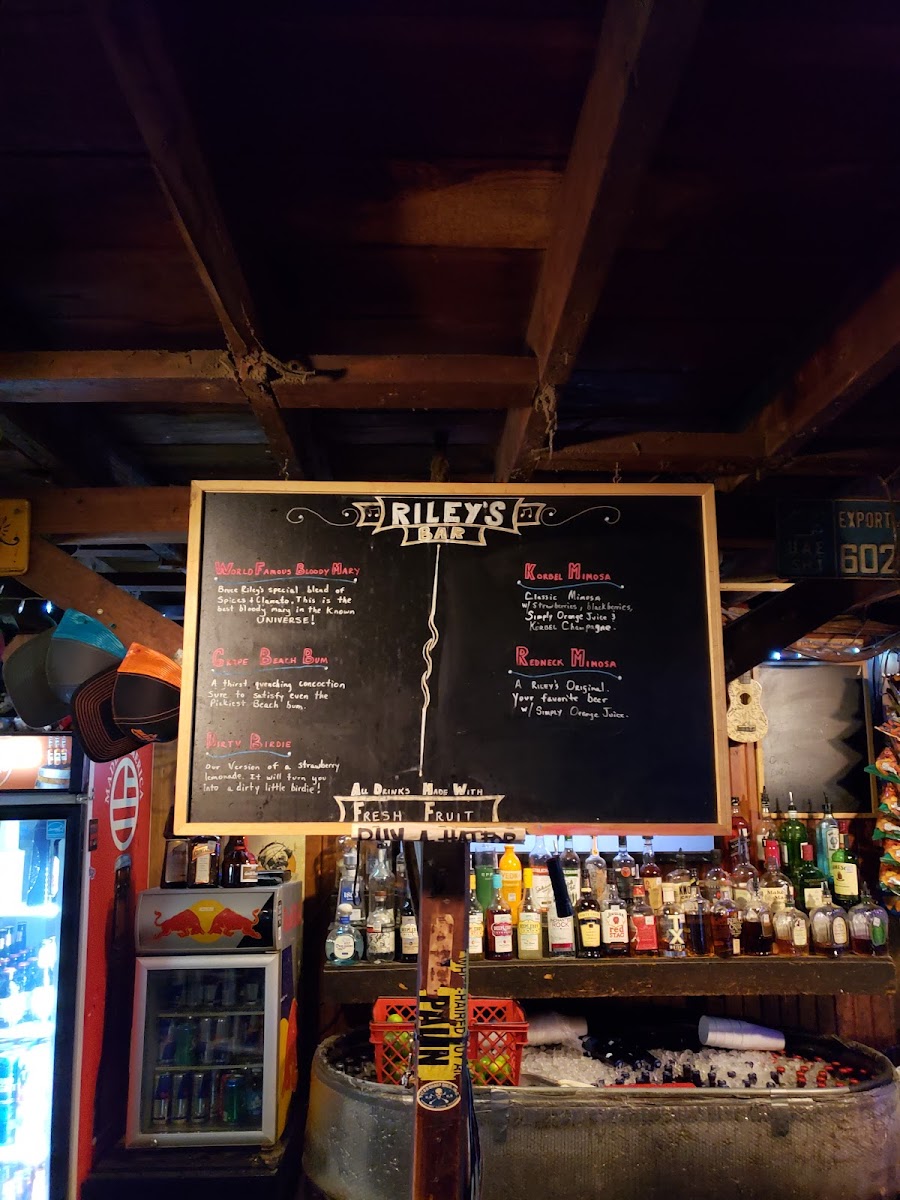 RILEY'S
BAR
WORLD FAMOUS BLOODY MARY
Bruce Riley's special blend of
Spices + Clamato. This is the
best bloody mary in the Known
UNIVERSE!
BEACH BUM
A thirst quenching concoction
Sure to satisfy even the
Pickiest Beach bum.
DIRTY BIRDIE
Our Version of a Strawberry
lemonade. It will turn you
Into a dirty little birdie!
KORBEL MIMOSA
Classic Mimosa
w/ Strawberries, blackberries,
Simply Orange Juice &
KORBEL Champagne.
REDNECK MIMOSA
A RILEY'S Original.
Your favorite beer
w/ Simply Orange Juice.
ALL DRINKS MADE WITH
FRESH FRUIT
EXPORT
602
PATIN
red
STAG